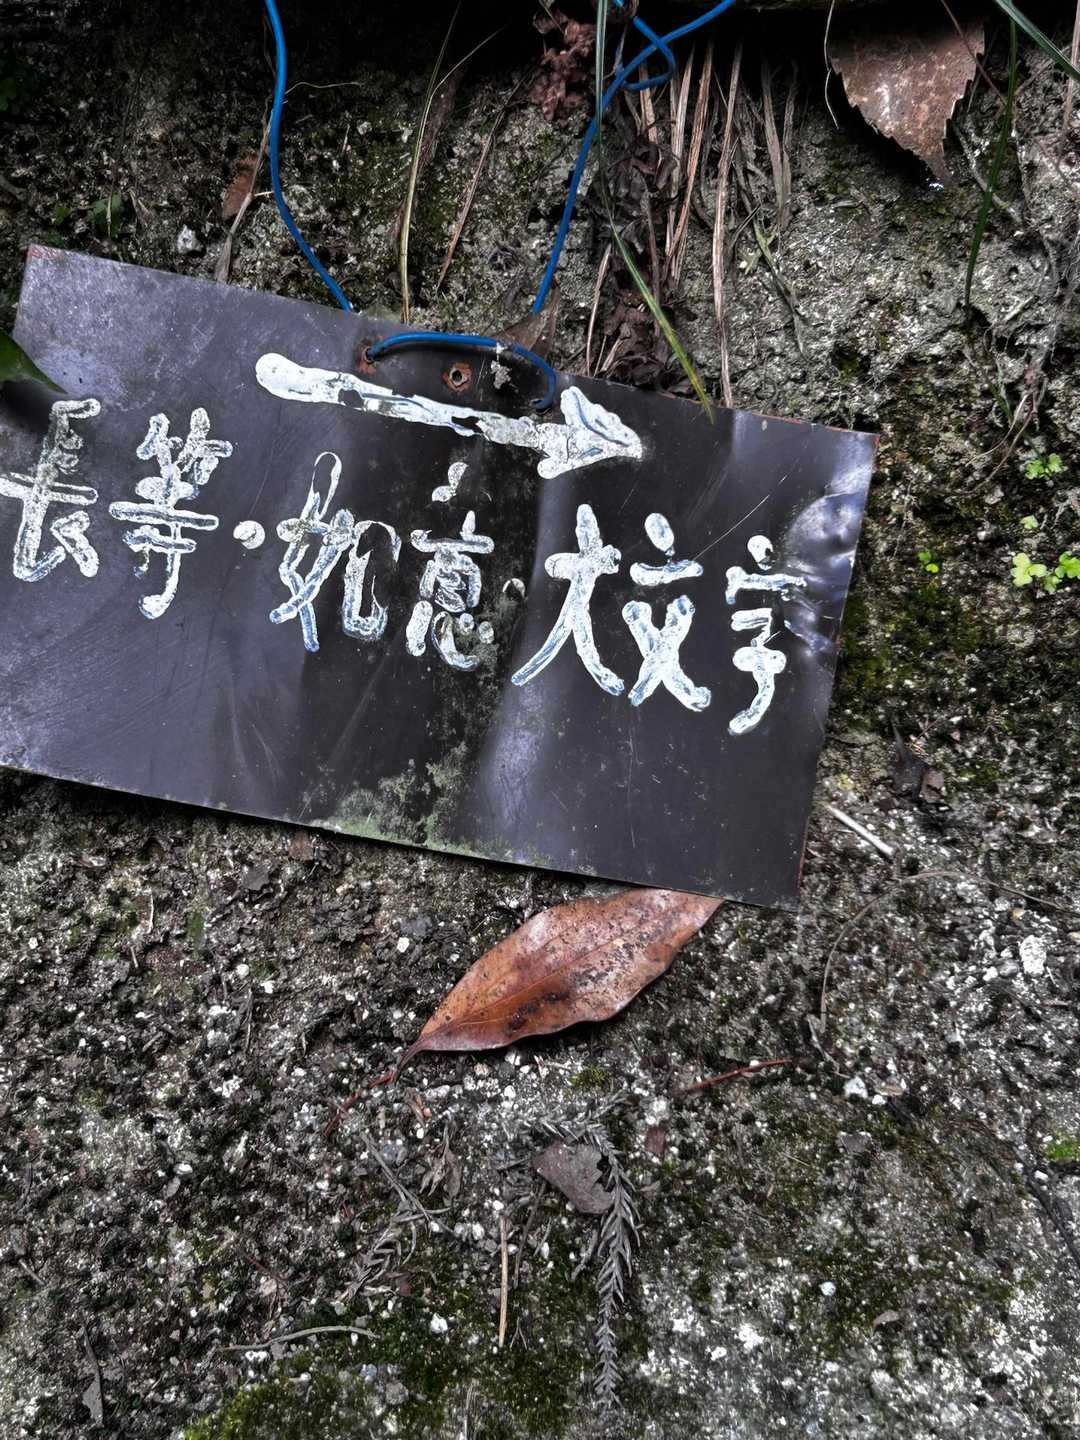 長等・如意・大文字